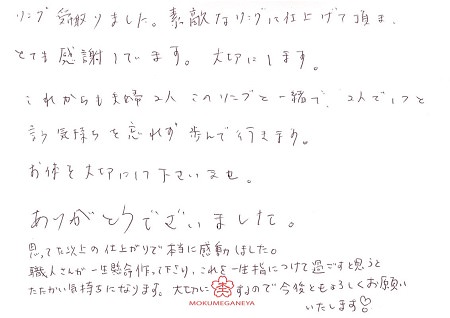 リング受取りました。素敵なリングに仕上げて頂き、
とても感謝しています。大切にします。
これからも夫婦2人このリングと一緒で、2人で1つと
言う気持ちを忘れず歩んで行きます。
お体を大切にして下さいませ。
ありがとうでざいました。
思ってた以上の仕上がりで本当に感動しました。
職人さんが一生懸命作って下さり、これを一生指につけて過ごすと思うと
たたかい気持ちになります。大切にするので今後ともよろしくお願い
いたします♡
MOKUMEGANEYA